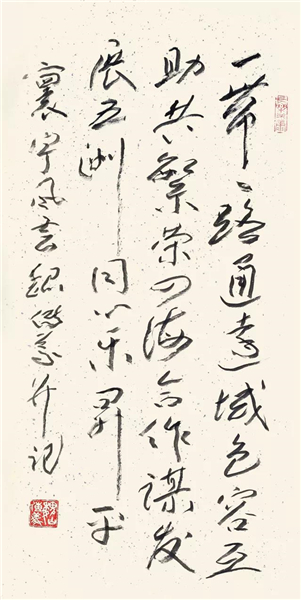 一带一路通遠域包容互
助共繁荣四海合作謀发
展五洲同心乐昇平
寰宇风云魏传义并记